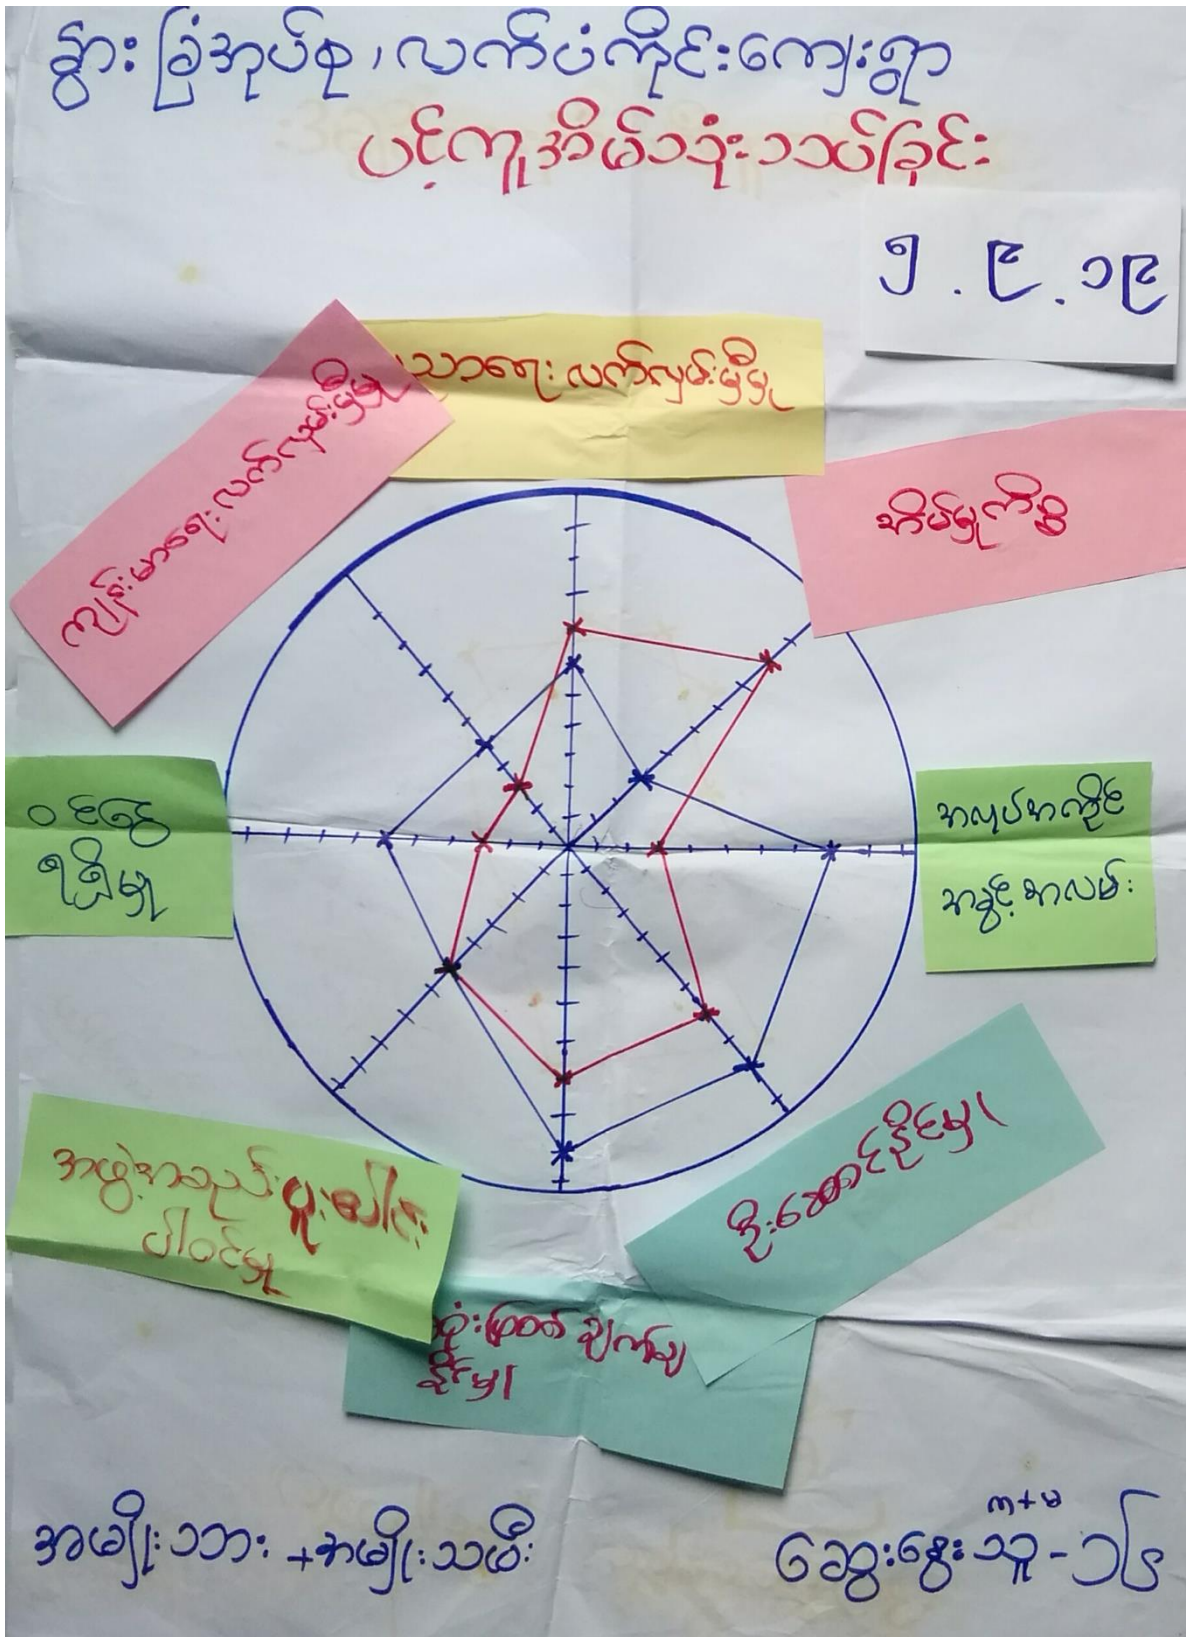 နွားခြံအုပ်စု၊ လက်ပံကိုင်းကျေးရွာ
ပင့်ကူအိမ်သုံးသပ်ခြင်း
၅.၉.၁၉
ကျန်းမာရေး လက်လှမ်းမှီမှု
ညာရေး လက်လှမ်းမှီမှု
အိမ်မှုကိစ္စ
ဝင်ငွေ
ရရှိမှု
အလုပ်အကိုင်
အခွင့်အလမ်း
ဦးဆောင်နိုင်မှု
အဖွဲ့အစည်းပူးပေါင်း
ပါဝင်မှု
ဆုံးဖြတ်ချက်ချ
နိုင်မှု
အမျိုးသား + အမျိုးသမီး
က+မ
ဆွေးနွေးသူ - ၁၆